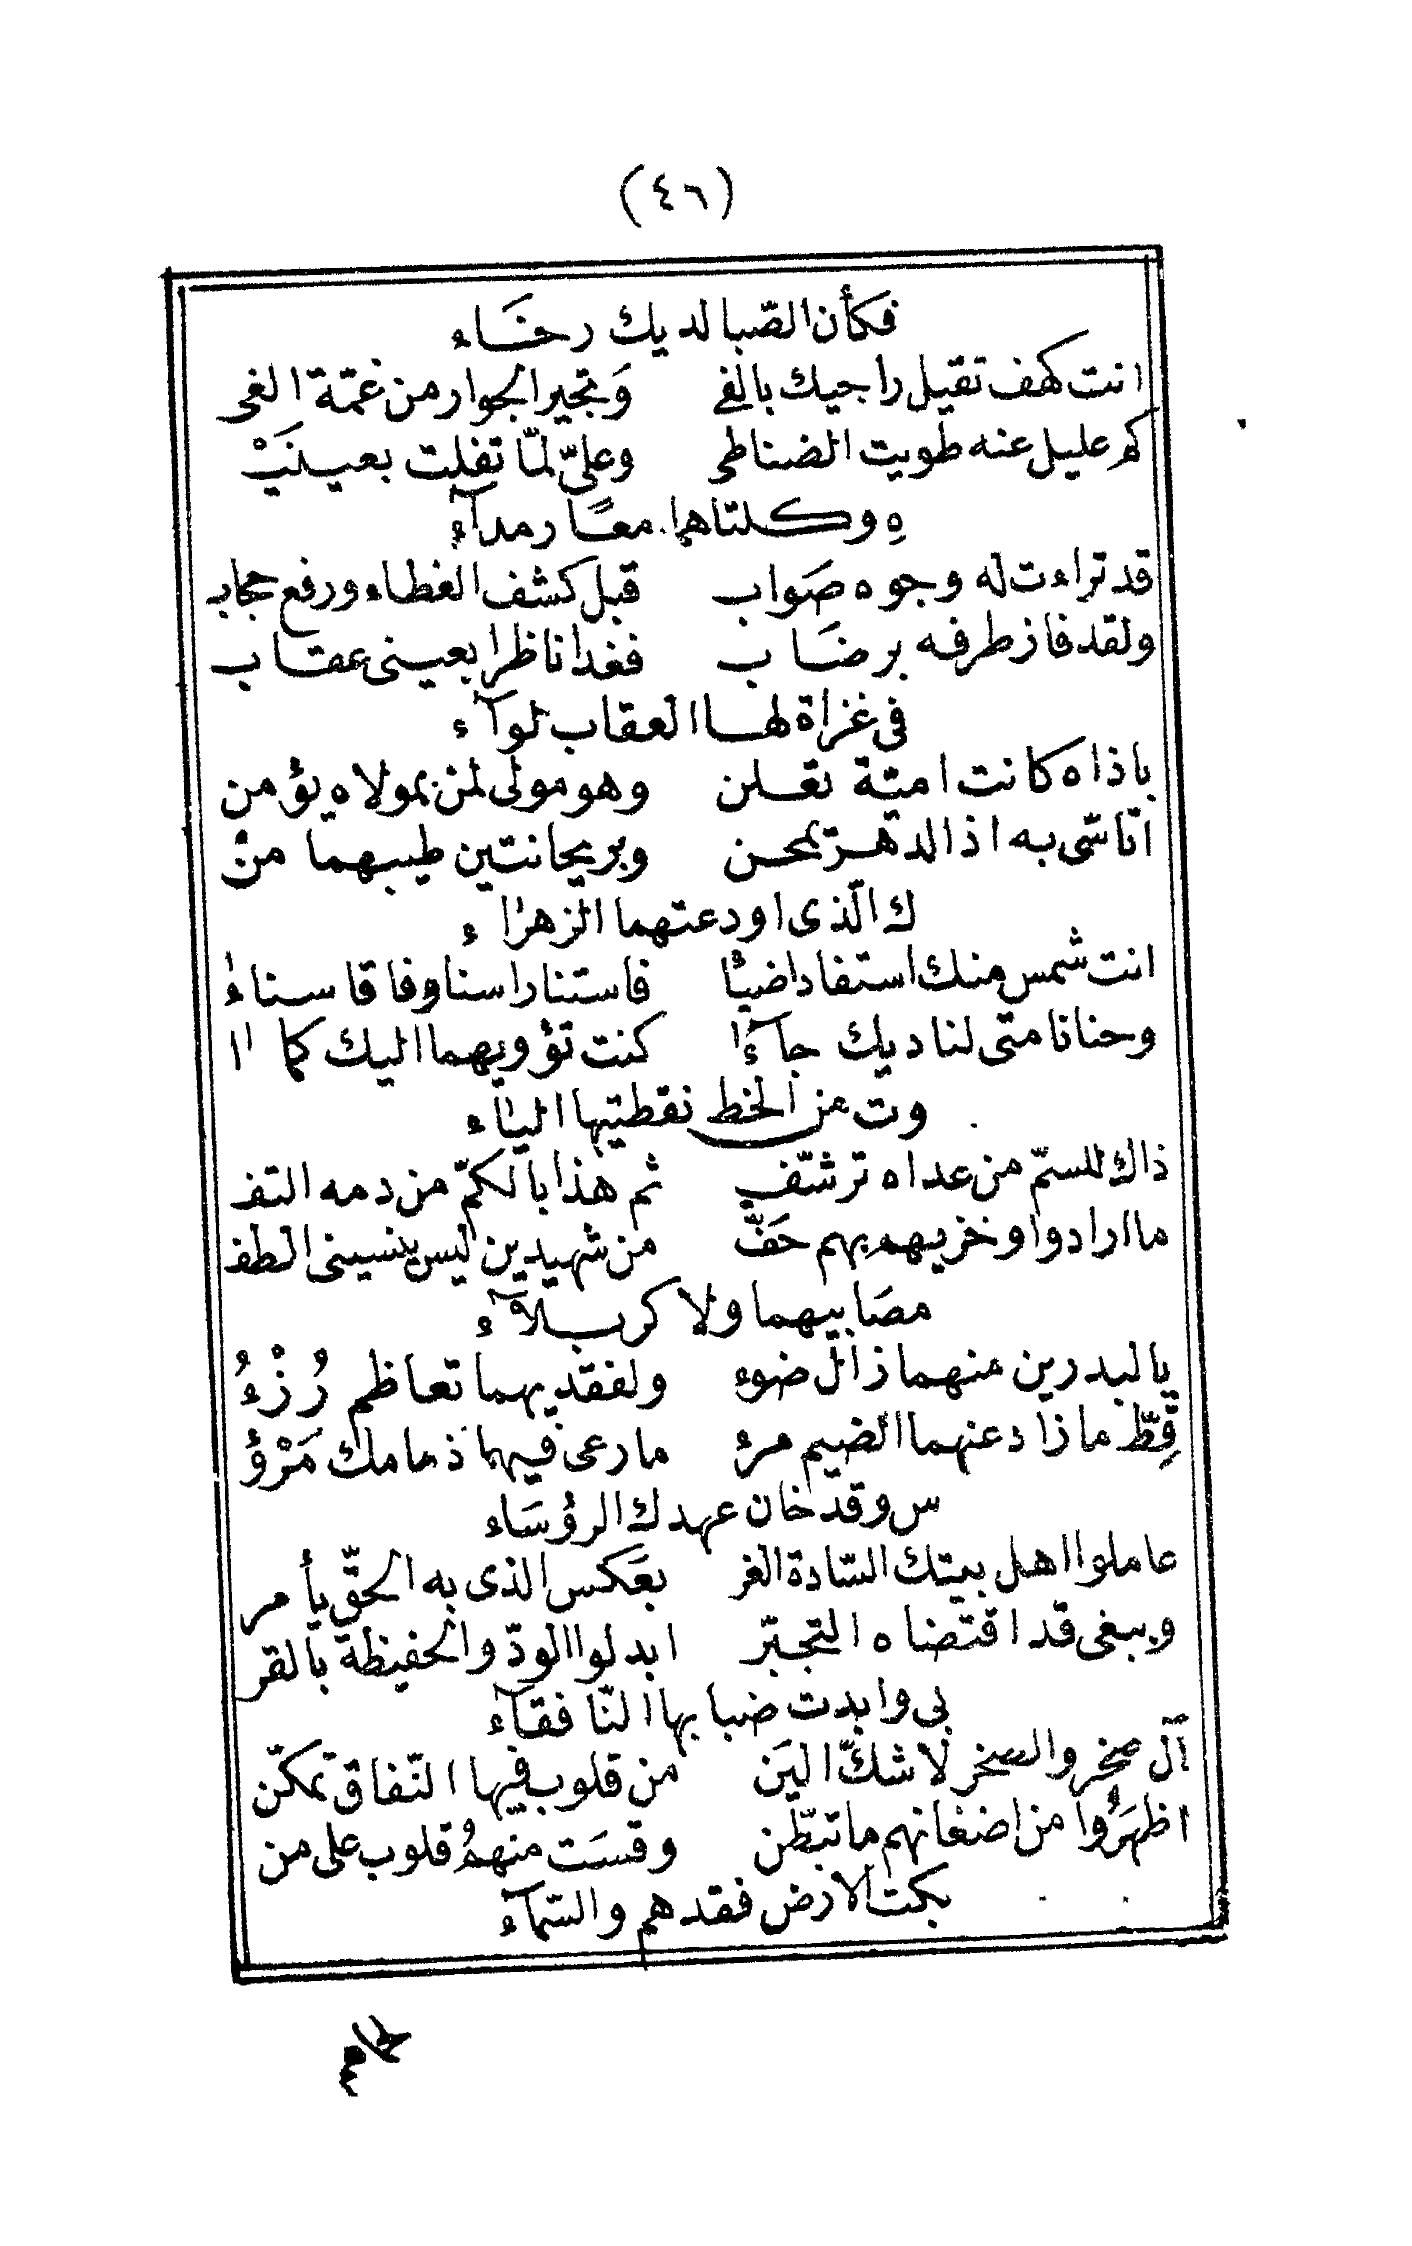 (٤٦)
فكأن الصّبا لديك رخَاء
انت كهف تقيل راجيك بالفى وَتجير الجوار من غمّة الغى
كم عليل عنه طويت الضنا طى وعلىّ لمّا تفلت بعيــنَيْ
هِ وكلتاهما معًا رمدآء
قد تراءت له وجوه صَواب قبل كشف الغطاء ورفع حجاب
ولقد فاز طرفه برضَاب فغدا ناظرا بعينى عقاب
فى غزاة لها العقاب لوآء
باذاه كانت اميّة تعلن وهو مولى لمن بمولاه يؤمن
انّاسّى به اذا الدهرّ يمحن وبريحانتين طيبهما منْ
ك الّذى اودعتهما الزهراء
انت شمس منك استفادا ضيئًا فاستنارا سنا وفاقا سناءً
وحنانا متى لناديك جآءا كنت تؤويهما اليك كما اا
وت من الخط نقطتيها الياء
ذاك للسمّ من عداه ترشّف ثم هذا بالكمّ من دمه التف
ما ارادوا وخزيهم بهم حَفّ من شهيدين ليس ينسينى الطف
مصَابيهما ولا كربلآء
يا لبدرين منهما زال ضوء ولفقديهما تعاظم رُزْءُ
قِطّ ماذا دعنهما الضيم مرءُ ما رعى فيهما ذمامك مَرْؤُ
س وقدّ خان عهدك الرؤسَاء
عاملوا اهل بيتك السّادة الغر بعَكس الذى به الحقّ يأمر
وببغى قد اقتضاه التجبّر ابدلوا الودّ والحفيظة بالقر
بى وابدت ضبابها النّافقآء
آل صخر والصخر لا شكّ اليَن من قلوب فيها النّفاق تمكّن
اظهَرُوا من اضغانهم ما تبطّن وقسَت منهمُ قلوب على من
بكت الارض فقدهم والسّمآء